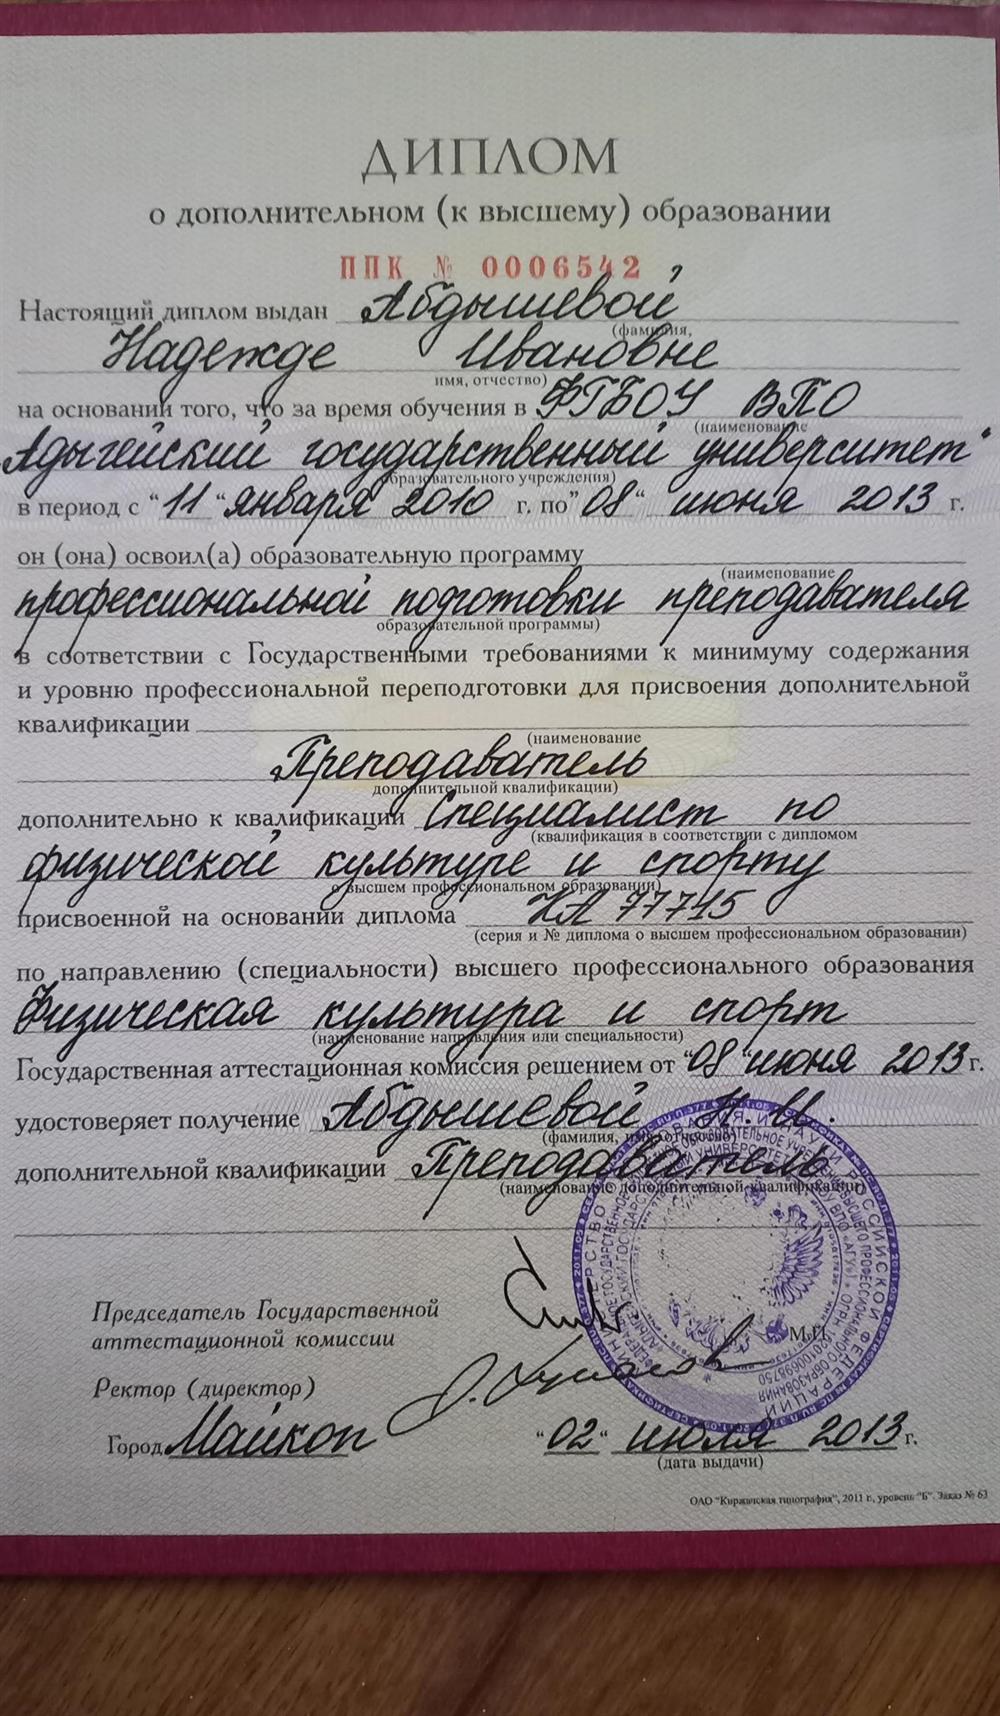 ДИПЛОМ
о дополнительном (к высшему) образовании
ППК № 0006542
Настоящий диплом выдан Абдышевой
(фамилия,
Надежде Ивановне
имя, отчество)
на основании того, что за время обучения в ФГБОУ ВПО
(наименование
Адыгейский государственный университет"
образовательного учреждения)
в период с "11" января 2010 г. по "08" июня 2013 г.
он (она) освоил(а) образовательную программу
(наименование
профессиональной подготовки преподавателя
образовательной программы)
в соответствии с Государственными требованиями к минимуму содержания
и уровню профессиональной переподготовки для присвоения дополнительной
квалификации
(наименование
Преподаватель
дополнительной квалификации)
дополнительно к квалификации Специалист по
(квалификация в соответствии с дипломом
физической культуре и спорту
о высшем профессиональном образовании)
присвоенной на основании диплома КА 77715
(серия и № диплома о высшем профессиональном образовании)
по направлению (специальности) высшего профессионального образования
Физическая культура и спорт
(наименование направления или специальности)
Государственная аттестационная комиссия решением от "08" июня 2013 г.
удостоверяет получение Абдышевой Н. И.
(фамилия, имя, отчество)
дополнительной квалификации Преподаватель
(наименование дополнительной квалификации)
Председатель Государственной
аттестационной комиссии
М.П.
Ректор (директор)
Город Майкоп "02" июля 2013 г.
(дата выдачи)
ОАО "Киржачская типография", 2011 г., уровень "Б". Заказ № 63